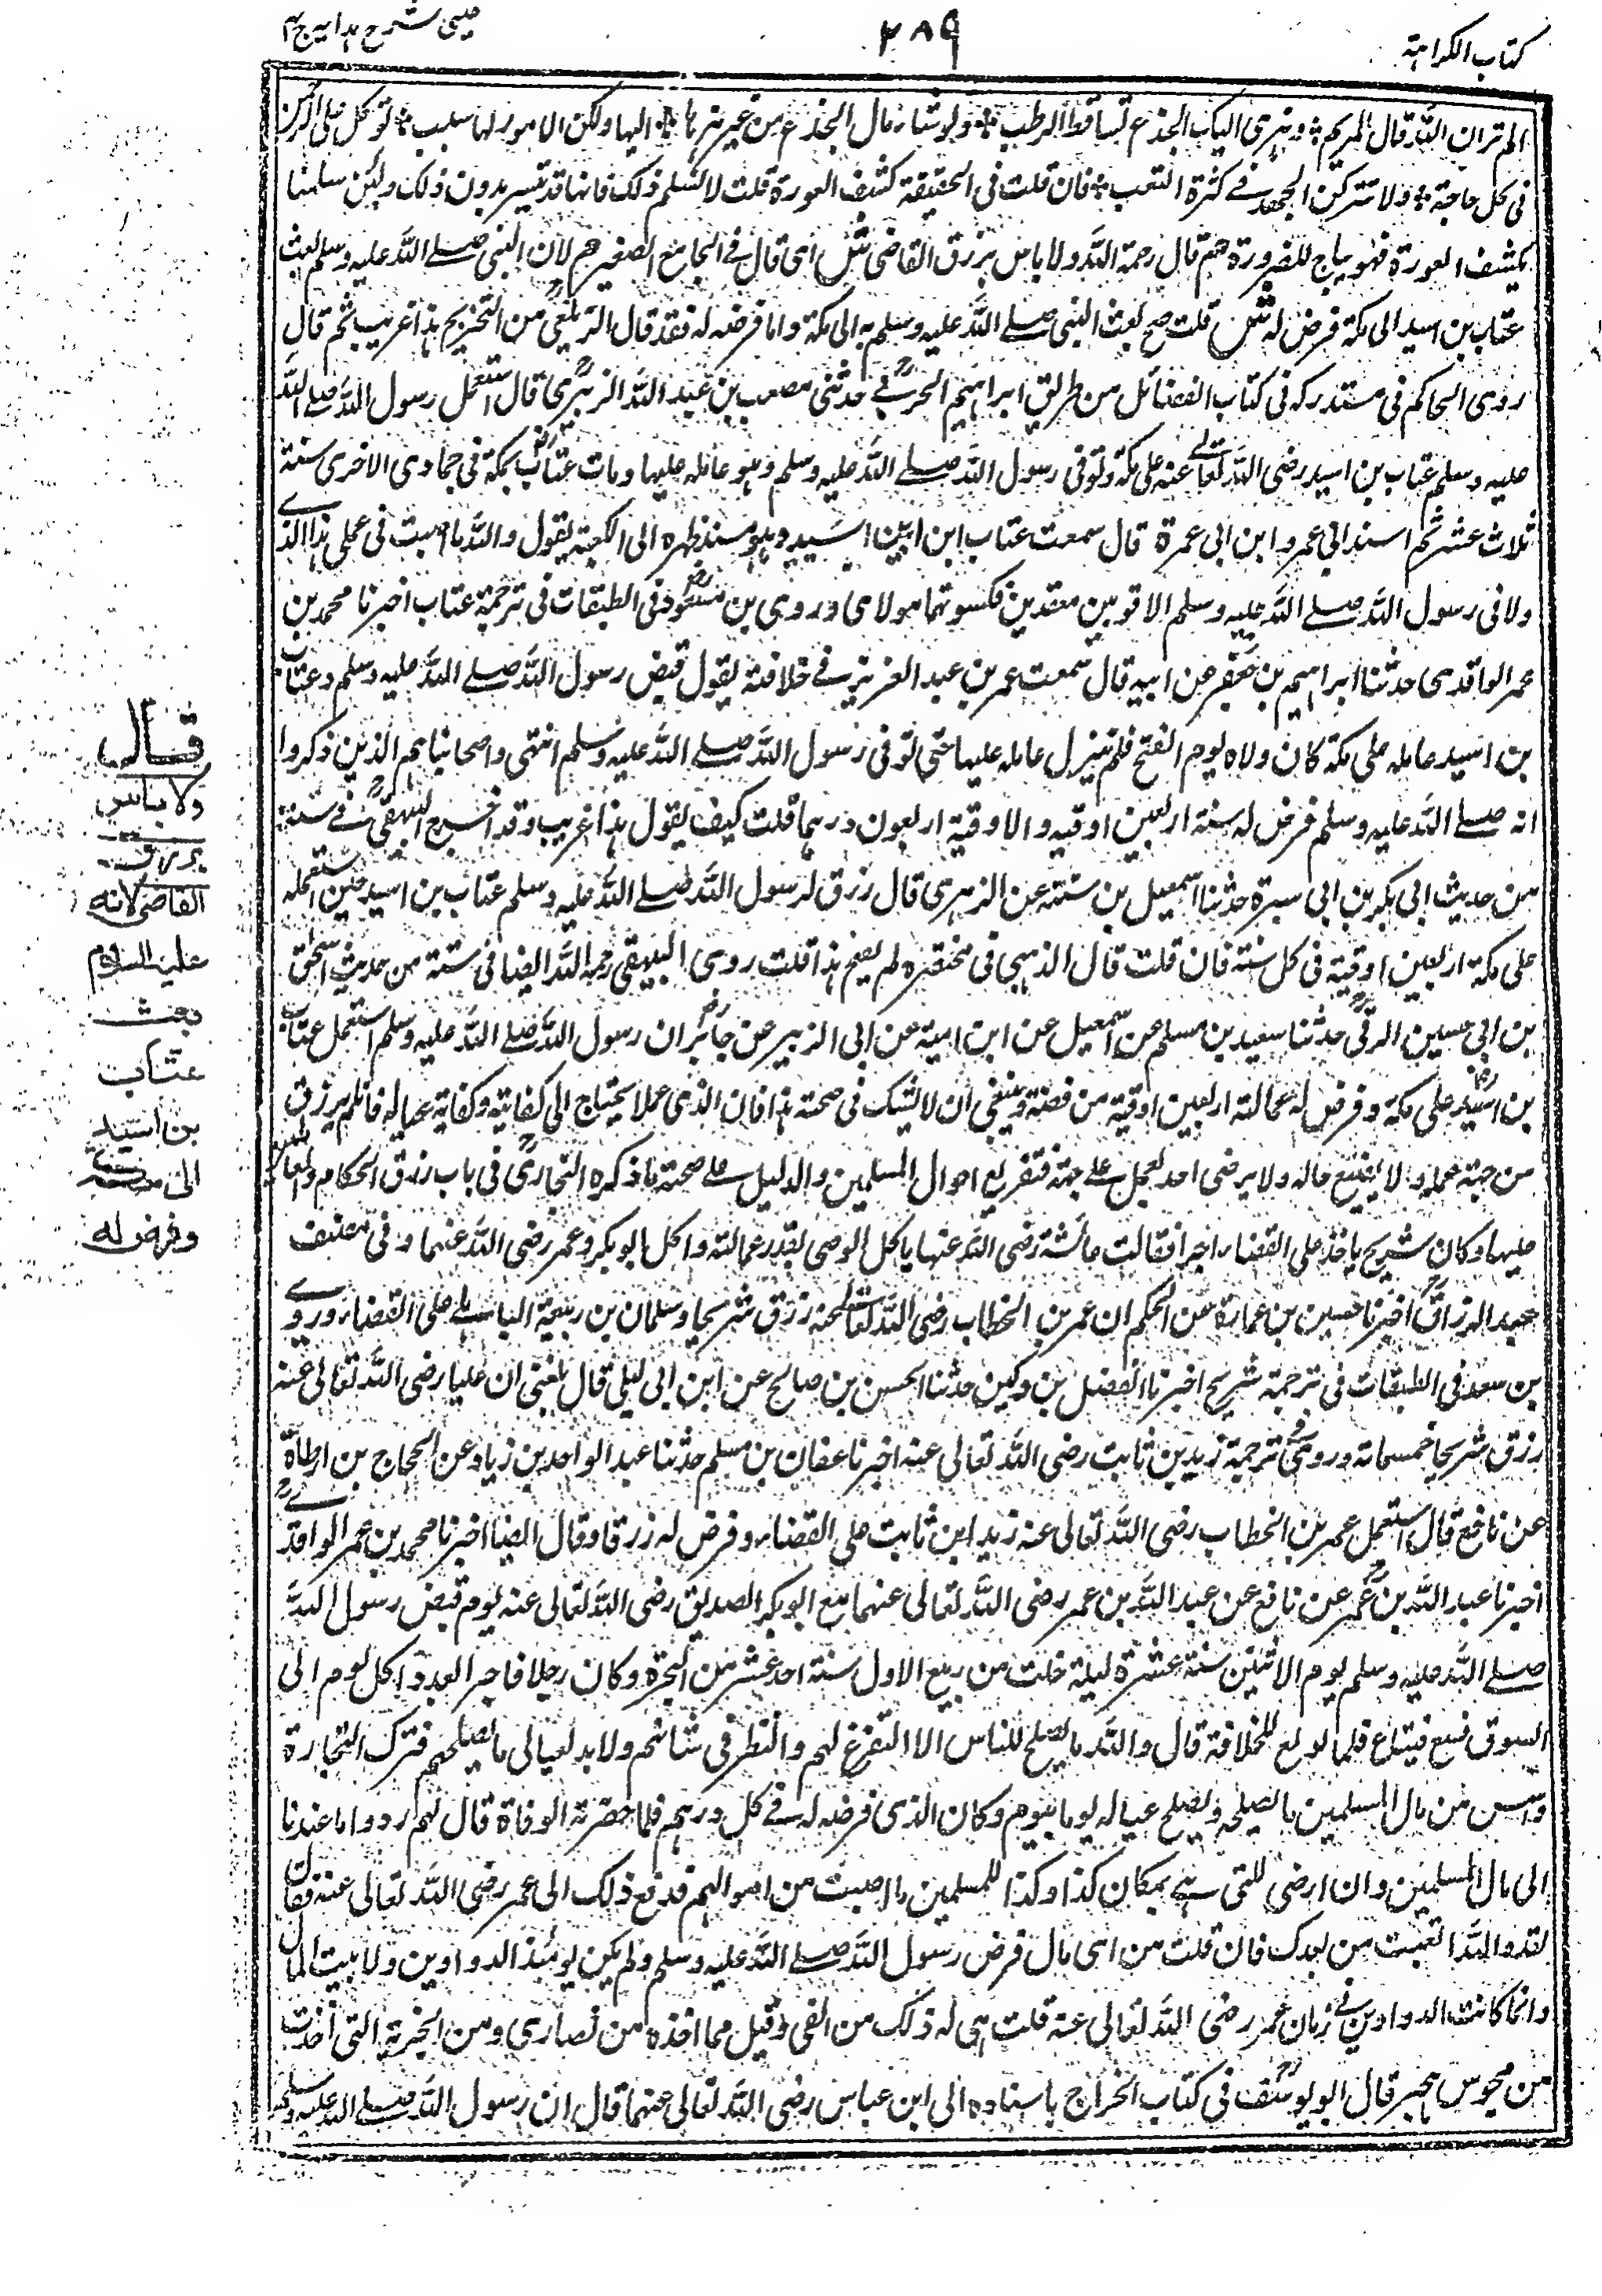 كتاب الكراهة
٢٨٩
عينى شرح هدايه ج ٤
الم تر ان الله قال لمريم ٭ وهزى اليك الجذع تساقط الرطب ٭ ولو شاء مال الجذع من غير هزها ٭ اليها ولكن الامور لها سبب ٭ توكل على الرحمن
فى كل حاجة ٭ ولا تتركن الجهد فى كثرة التعب ٭ فان قلت فى الحقيقة كشف العورة قلت لا نسلم ذلك فانها قد تتيسر بدون ذلك ولئن سلمنا
كشف العورة فهو يباح للضرورة هم قال رحمه الله ولا باس برزق القاضى ش اى قال فى الجامع الصغير هم لان النبى صلى الله عليه وسلم بعث
عتاب بن اسيد الى مكة فرض له ش قلت صح بعث النبى صلى الله عليه وسلم به الى مكة واما فرضه له فقد قال الزيلعى من التخريج هذا غريب ثم قال
روى الحاكم فى مستدركه فى كتاب الفضائل من طريق ابراهيم الحربى حدثنى مصعب بن عبد الله الزبيرى قال استعمل رسول الله صلى الله
عليه وسلم عتاب بن اسيد رضى الله تعالى عنه على مكة وتوفى رسول الله صلى الله عليه وسلم وهو عامله عليها ومات عتاب بمكة فى جمادى الاخرى سنة
ثلاث عشر ثم اسند الى عمرو ابن ابى عمرة قال سمعت عتاب ابن اسيد وهو مسند ظهره الى الكعبة يقول والله ما اصبت فى عملى هذا الذى
ولانى رسول الله صلى الله عليه وسلم الا ثوبين معقدين فكسوتهما مولاى وروى بن سعود فى الطبقات فى ترجمة عتاب اخبرنا محمد بن
عمر الواقدى حدثنا ابراهيم بن جعفر عن ابيه قال سمعت عمر بن عبد العزيز فى خلافته يقول قبض رسول الله صلى الله عليه وسلم وعتاب
بن اسيد عامله على مكة كان ولاه يوم الفتح فلم يزل عامله عليها حتى توفى رسول الله صلى الله عليه وسلم انتهى واصحابنا هم الذين ذكروا
انه صلى الله عليه وسلم فرض له سنة اربعين اوقيه والاوقية اربعون درهما قلت كيف يقول هذا غريب وقد اخرج البيهقى فى سننه
من حديث ابى بكر بن ابى سبرة حدثنا اسمعيل بن سنة عن الزهرى قال رزق له رسول الله صلى الله عليه وسلم عتاب بن اسيد حين استعمله
على مكة اربعين اوقية فى كل سنة فان قلت قال الذهبى فى مختصره لم يصح هذا قلت روى البيهقى رحمه الله ايضا فى سننه من حديث اسحق
بن ابى حسين الرقى حدثنا سعيد بن مسلم عن اسمعيل عن ابن امية عن ابى الزبير عن جابر ان رسول الله صلى الله عليه وسلم استعمل عتاب
بن اسيد على مكة وفرض له عمالته اربعين اوقية من فضة وينبغى ان لا يشك فى صحة هذا فان الذى عملا يحتاج الى كفايته وكفاية عياله فان لم يرزق
من جهة عمله والا يضيع حاله ولا يرضى احد يعمل على جهة فتفريع احوال المسلمين والدليل على صحة ما ذكره البخارى فى باب رزق الحكام والعاملين
عليها وكان شريح ياخذ على القضاء اجرا فقالت عائشة رضى الله عنها ياكل الوصى بقدر عمالته واكل ابو بكر وعمر رضى الله عنهما وفى مصنف
عبد الرزاق اخبرنا حسين بن عمارة عن الحكم ان عمر بن الخطاب رضى الله تعالى عنه رزق شريحا وسلمان بن ربيعة الباهلى على القضاء وروى
بن سعد فى الطبقات فى ترجمة شريح اخبرنا الفضل بن دكين حدثنا الحسن بن صالح عن ابن ابى ليلى قال بلغنى ان عليا رضى الله تعالى عنه
رزق شريحا خمسمائة وروى فى ترجمة زيد بن ثابت رضى الله تعالى عنه اخبرنا عفان بن مسلم حدثنا عبد الواحد بن زياد عن الحجاج بن ارطاة
عن نافع قال استعمل عمر بن الخطاب رضى الله تعالى عنه زيد ابن ثابت على القضاء وفرض له رزقا وقال ايضا اخبرنا محمد بن عمر الواقدى
اخبرنا عبد الله بن عمر عن نافع عن عبد الله بن عمر رضى الله تعالى عنهما بيع ابو بكر الصديق رضى الله تعالى عنه يوم قبض رسول الله
صلى الله عليه وسلم يوم الاثنين سنة عشرة ليلة خلت من ربيع الاول سنة احد عشر من الهجرة وكان رجلا فاجر العدو اكل يوم الى
السوق فبيع فيبتاع فلما بويع للخلافة قال والله ما يصلح للناس الا التفرغ لهم والنظر فى شانهم ولا بد لعيالى ما يصلحهم فترك التجارة
واسسن من مال المسلمين ما يصلحه ويصلح عياله يوما بيوم وكان الذى فرضه له فى كل درهم فلما حضرته الوفاة قال لهم ردوا ما عندنا
الى مال المسلمين وان ارضى للتى هى بمكان كذا وكذا للمسلمين بما اصبت من اموالهم فدفع ذلك الى عمر رضى الله تعالى عنه فقال
لقد والله اتعبت من بعدك فان قلت من اى مال فرض رسول الله صلى الله عليه وسلم ولم يكن يومئذ الدواوين ولا بيت المال
وانما كانت الدواوين فى زمان عمر رضى الله تعالى عنه قلت هى له ذلك من الفى وقيل مما اخذه من نصارى ومن الجزية التى اخذت
من مجوس هجر قال ابو يوسف فى كتاب الخراج باسناده الى ابن عباس رضى الله تعالى عنهما قال ان رسول الله صلى الله عليه وسلم
قال
ولا باس
برزق
القاضى لانه
عليه السلام
بعث
عتاب
بن اسيد
الى مكة
وفرض له